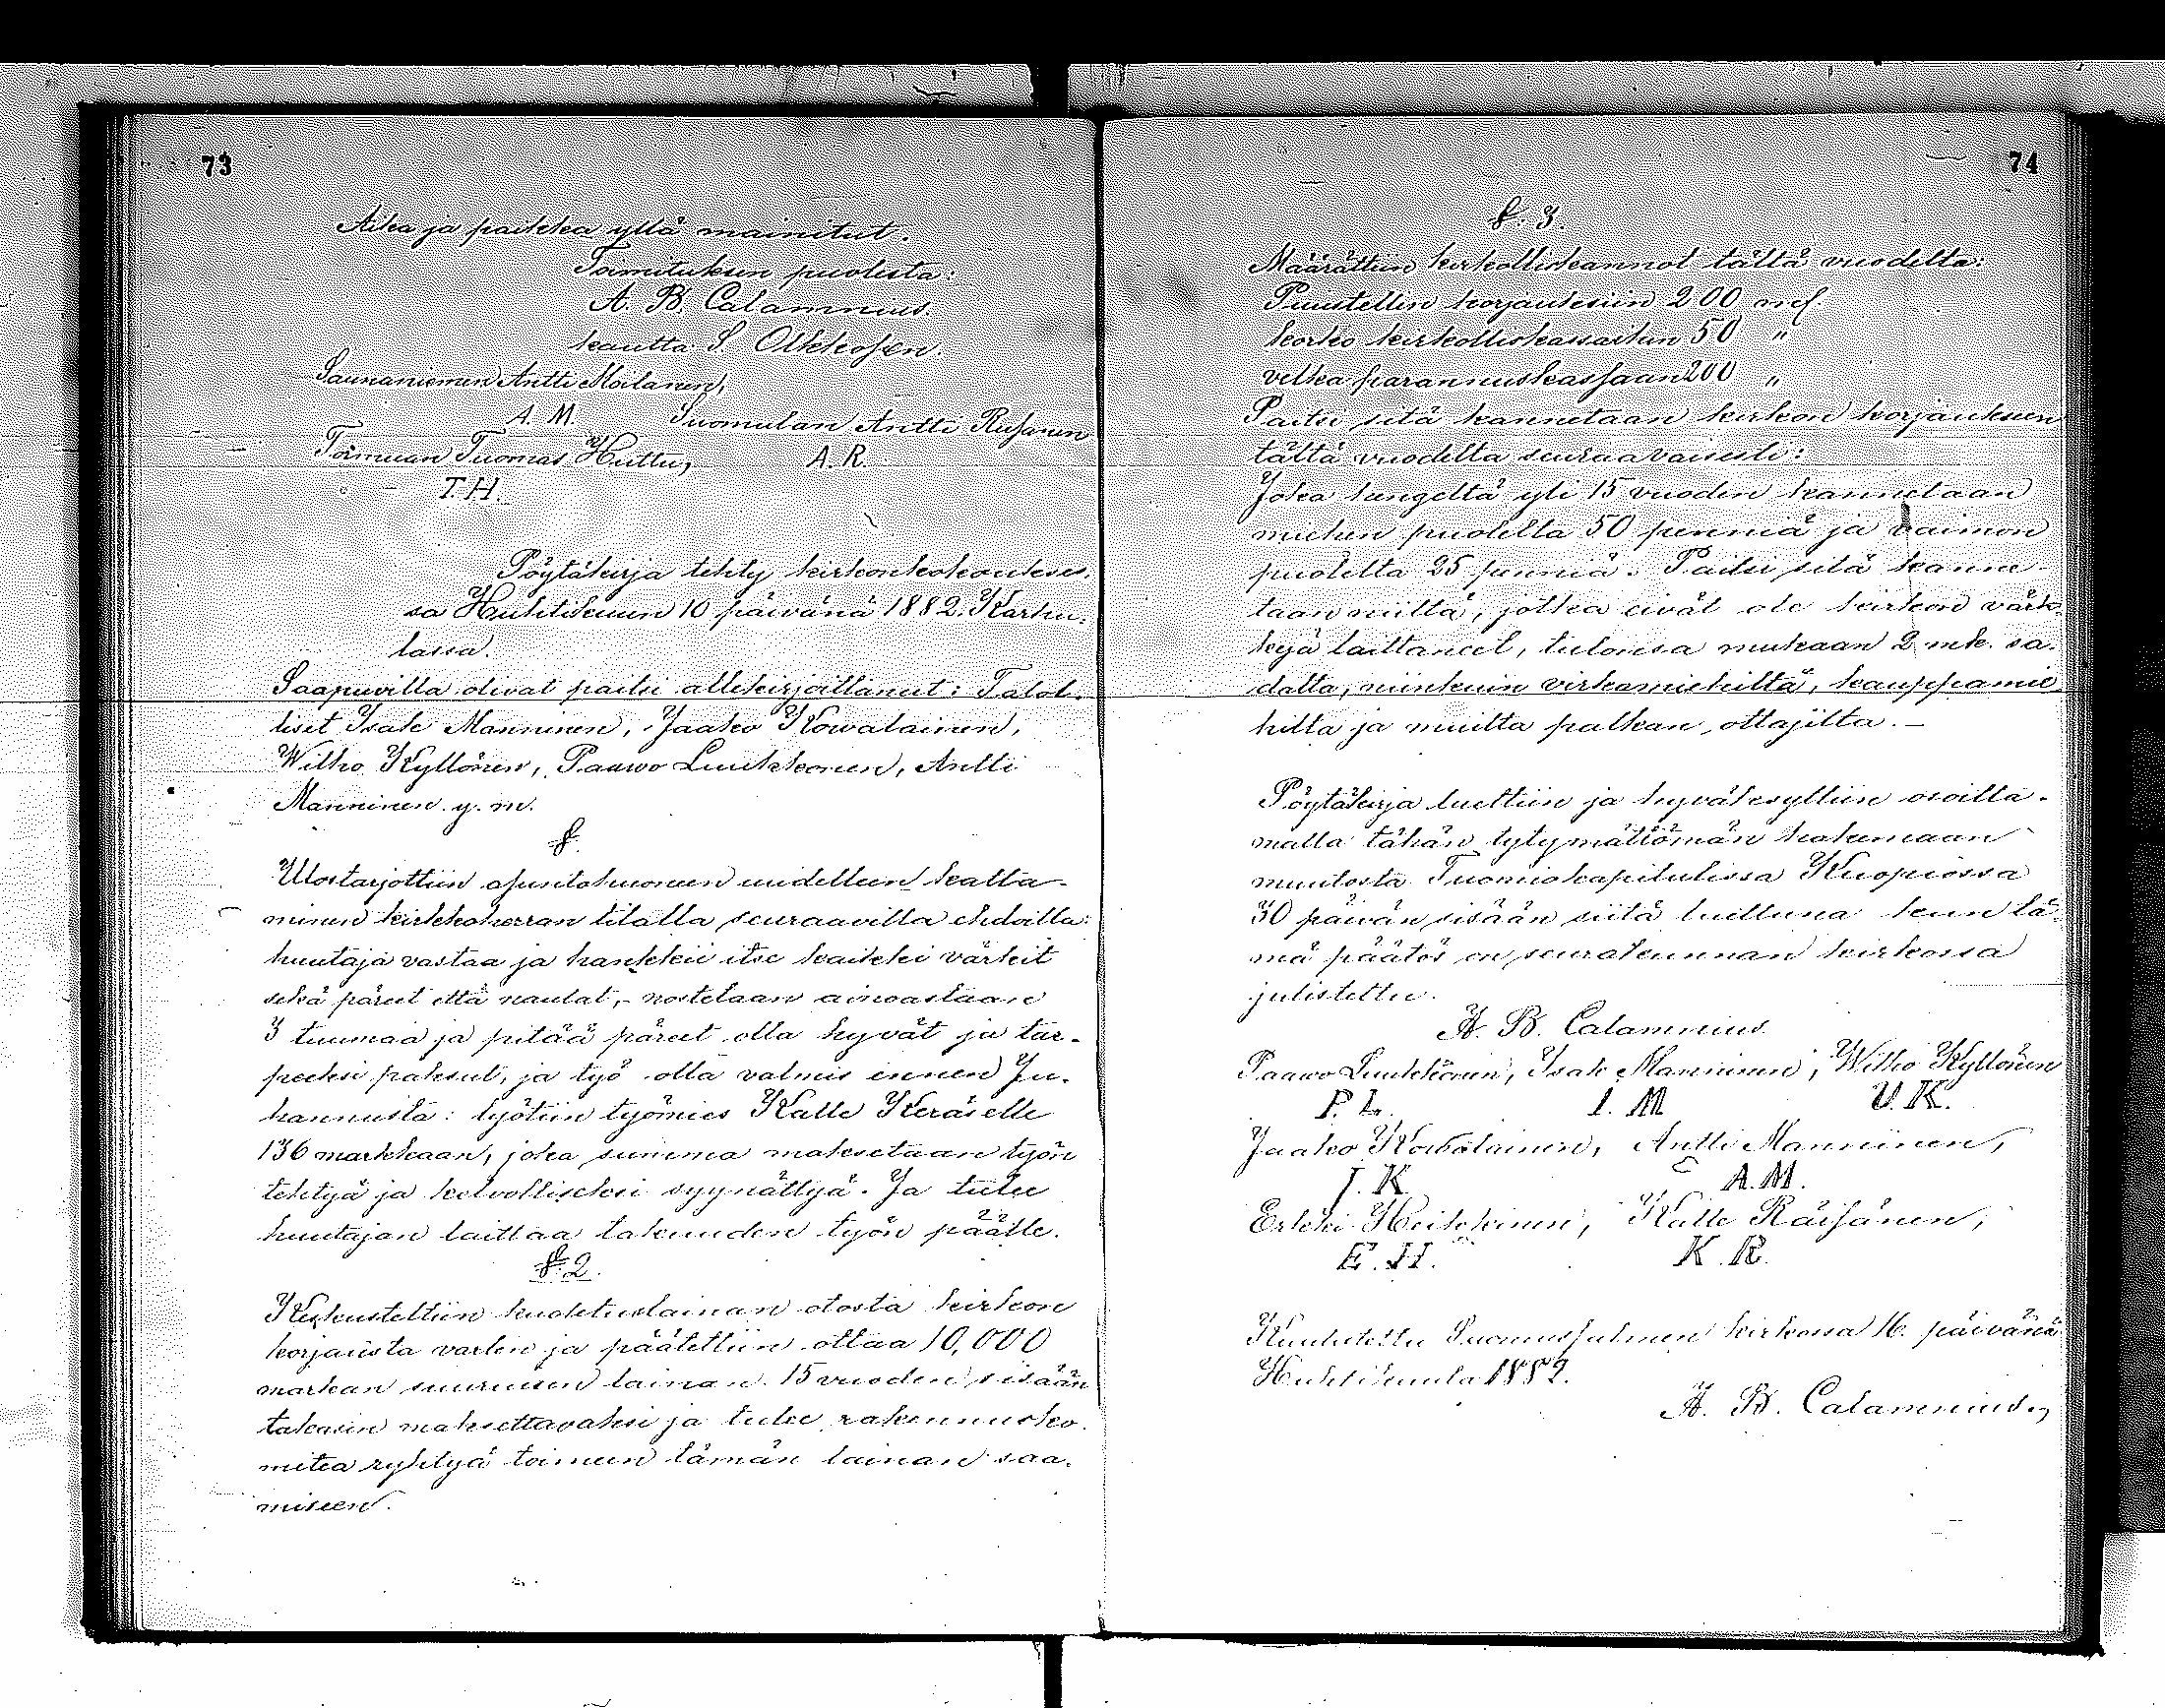 73
Aika ja paikka yllä mainitut.
Toimituksen puolesta:
A. B. Calamnius.
kautta S. Olkkosen.
Saunaniemen Antti Moilanen,
A. M. Suomulan Antti Rusanen
Törmuan Tuomas Huttu, A. R.
T. H.
Pöytäkirja tehty kirkonkokoukses-
sa Huhtikuun 10 päivänä 1882. Karhu-
lassa.
Saapuvilla olivat paitsi allekirjoittanut: Talol-
liset Isak Manninen, Jaako Kowalainen,
Wilho Kyllönen, Paawo Luukkonen, Antti
Manninen y. m.
§.
Ulostarjottiin asuntohuoneen uudelleen katta-
minen kirkkoherran tilalla seuraavilla ehdoilla:
huutaja vastaa ja hankkii itse kaikki värkit
sekä päreet että naulat, - nostetaan ainoastaan
3 tuumaa ja pitää päreet olla hyvät ja tar-
peeksi paksut, ja työ olla valmis ennen Ju-
hannusta: lyötiin työmies Kalle Keräselle
136 markkaan, joka summa maksetaan työn
tehtyä ja kelvolliseksi syynättyä. Ja tulee
huutajan laittaa takuuden työn päälle.
§. 2.
Keskusteltiin kuoletuslainan otosta kirkon
korjausta varten ja päätettiin ottaa 10,000
markan suuruisen lainan 15 vuoden sisään
takasin maksettavaksi ja tulee rakennusko-
mitea ryhtyä toimeen tämän lainan saa-
miseen.
74
§. 3.
Määrättiin kirkolliskannot tältä vuodelta:
Puustellin korjauksiin 200 mk.
korko kirkolliskassaitun 50 "
velka parannuskassaan 200 "
Paitsi sitä kannetaan kirkon korjaukseen
tältä vuodelta seuraavaisesti:
Joka hengeltä yli 15 vuoden kannetaan
miehen puolelta 50 penniä ja vaimon
puolelta 25 penniä. Paitsi sitä kanne-
taan niiltä, jotka eivät ole kirkon värk-
kejä laittaneet, tulonsa mukaan 2 mk. sa-
dalta, niinkuin virkamiehiltä, kauppamie
hiltä ja muilta palkan ottajilta. -
Pöytäkirja luettiin ja hyväksyttiin osoitta-
malla tähän tytymättömän hakemaan
muutosta Tuomiokapitulissa Kuopiossa
30 päivän sisään siitä luettuna kun tä-
mä päätös on seurakunnan kirkossa
julistettu.
A. B. Calamnius.
Paawo Luukkonen, Isak Manninen, Wilho Kyllönen
P. L. I. M. V. K.
Jaako Kowalainen, Antti Manninen,
J. K. A. M.
Erkki Heikkinen, Kalle Räisänen,
E. H. K. R.
Kuulutettu Suomussalmen kirkossa 16. päivänä
Huhtikuuta 1882.
A. B. Calamnius.